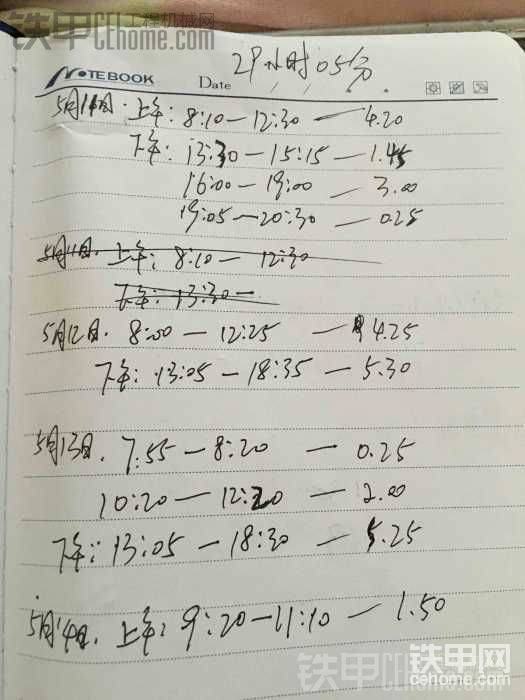 铁甲工程机械网
CEhome.com
29小时05分
NOTEBOOK
Date
5月11日. 上午: 8:10—12:30 — 4.20
下午: 13:30—15:15 — 1.45
16:00—19:00 — 3.00
19:05—20:30 — 0.25
5月11日. 上午: 8:10 — 12:30
下午: 13:30—
5月12日. 8:00 — 12:25 — 4.25
下午: 13:05 — 18:35 — 5.30
5月13日. 7:55 — 8:20 — 0.25
10:20 — 12:20 — 2.00
下午: 13:05 — 18:30 — 5.25
5月14日. 上午: 9:20—11:10 — 1.50
铁甲CEhome.com
铁甲网
cehome.com